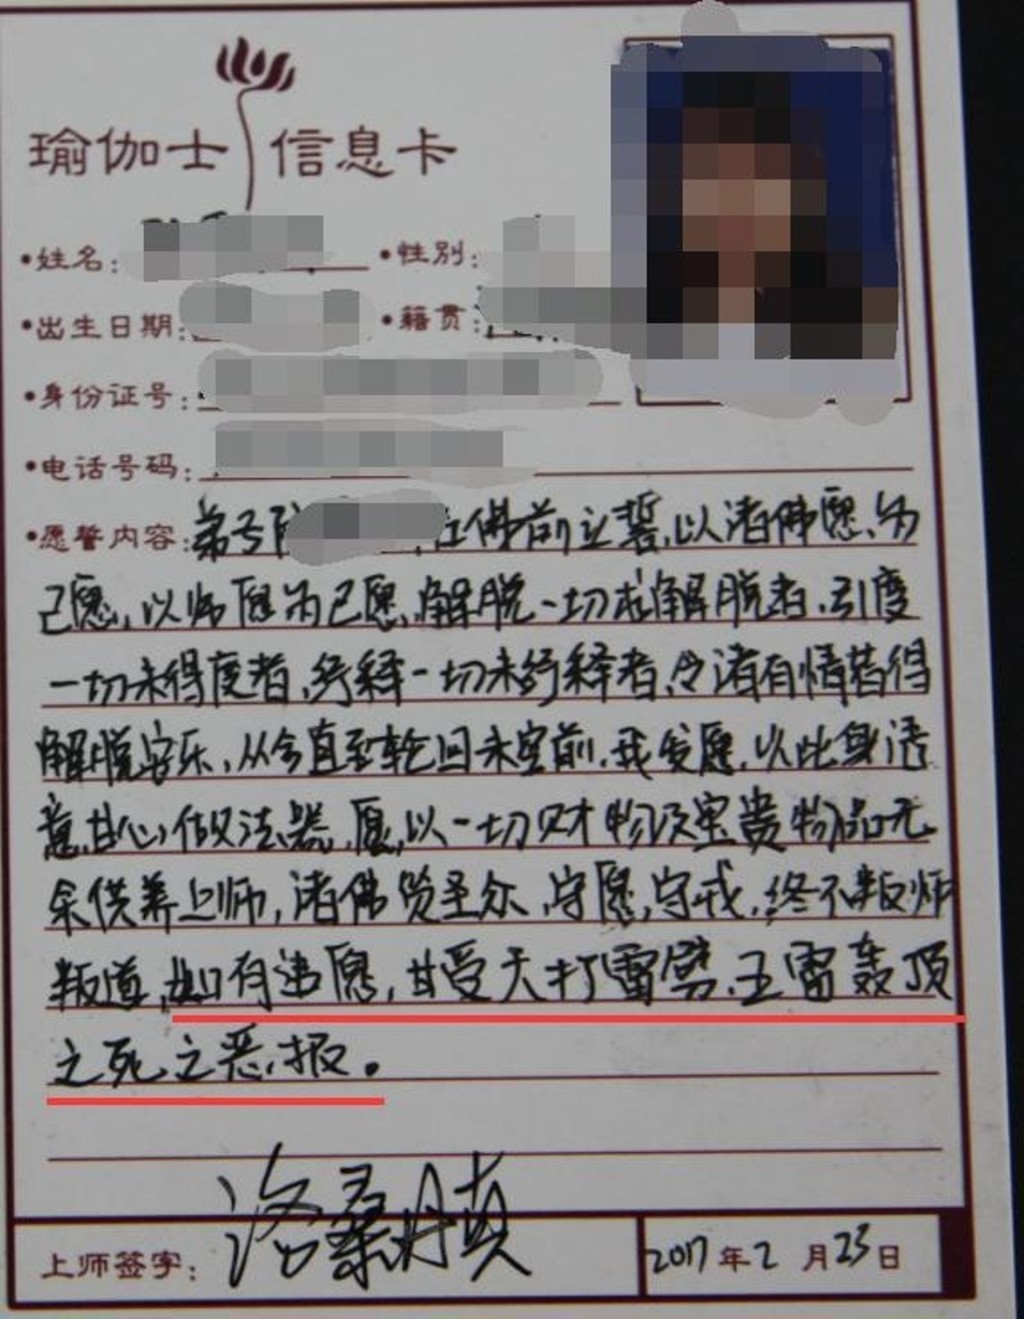 瑜伽士 信息卡
•姓名:
•性别:
•出生日期:
•籍贯:
•身份证号:
•电话号码:
•愿誓内容: 弟子 在佛前立誓,以诸佛愿为
己愿,以师愿为己愿,解脱一切求解脱者,引度
一切未得度者,纾释一切未纾释者,令诸有情若得
解脱安乐,从今直至轮回未空前,我发愿,以此身语
意甘心做法器,愿以一切财物及宝贵物品无
余供养上师,诸佛 圣尔,守愿,守戒,终不叛师
叛道,如有违愿,甘受天打雷劈,五雷轰顶
之死之恶报。
上师签字: 洛桑丹真
2017年2月23日